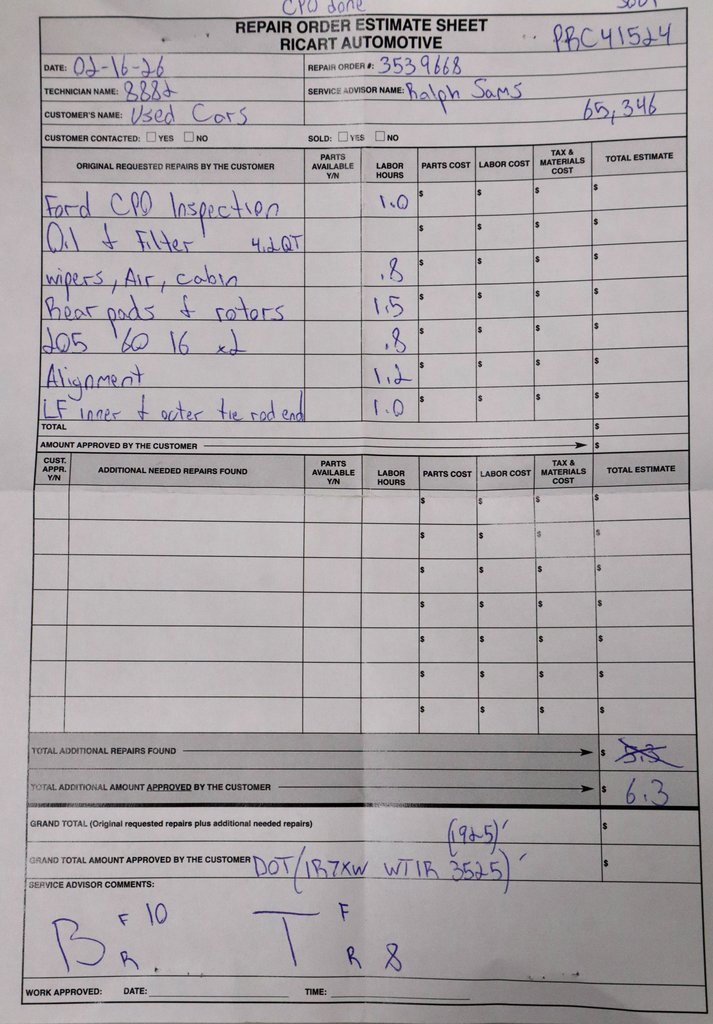 CPO done
REPAIR ORDER ESTIMATE SHEET
RICART AUTOMOTIVE
PRC41524
DATE: 02-16-26 REPAIR ORDER #: 3539668
TECHNICIAN NAME: 8882 SERVICE ADVISOR NAME: Ralph Sams
CUSTOMER'S NAME: Used Cars 65,346
CUSTOMER CONTACTED: ☐ YES ☐ NO SOLD: ☐ YES ☐ NO
ORIGINAL REQUESTED REPAIRS BY THE CUSTOMER PARTS AVAILABLE Y/N LABOR HOURS PARTS COST LABOR COST TAX & MATERIALS COST TOTAL ESTIMATE
Ford CPO Inspection 1.0 $ $ $ $
Oil & Filter 4.2QT $ $ $ $
wipers, Air, cabin .8 $ $ $ $
Rear pads & rotors 1.5 $ $ $ $
205 60 16 x2 .8 $ $ $ $
Alignment 1.2 $ $ $ $
LF inner & outer tie rod end 1.0 $ $ $ $
TOTAL $
AMOUNT APPROVED BY THE CUSTOMER $
CUST. APPR. Y/N ADDITIONAL NEEDED REPAIRS FOUND PARTS AVAILABLE Y/N LABOR HOURS PARTS COST LABOR COST TAX & MATERIALS COST TOTAL ESTIMATE
$ $ $ $
$ $ $ $
$ $ $ $
$ $ $ $
$ $ $ $
$ $ $ $
$ $ $ $
TOTAL ADDITIONAL REPAIRS FOUND $ 5.3
TOTAL ADDITIONAL AMOUNT APPROVED BY THE CUSTOMER $ 6.3
GRAND TOTAL (Original requested repairs plus additional needed repairs) (1925) $
GRAND TOTAL AMOUNT APPROVED BY THE CUSTOMER DOT (1R7XW WT1R 3525) $
SERVICE ADVISOR COMMENTS:
B F 10 T F
R R 8
WORK APPROVED: DATE: TIME: